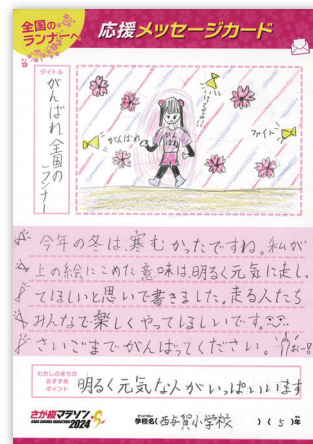 全国の
ランナーへ
応援メッセージカード
タイトル
がんばれ全国の
ランナー
いけるよ!!
がんばれ
ファイト
がん
ばれ
今年の冬は、寒むかったですね。私が
上の絵にこめた意味は、明るく元気に走っ
てほしいと思いで書きました。走る人たち
みんなで楽しくやってほしいです。
さいごまでがんばってください。
わたしのまちの
おすすめ
ポイント
明るく元気な人がいっぱいいます
さが桜マラソン
SAGA SAKURA MARATHON
2024
学校名(西与賀小学校)(5)年